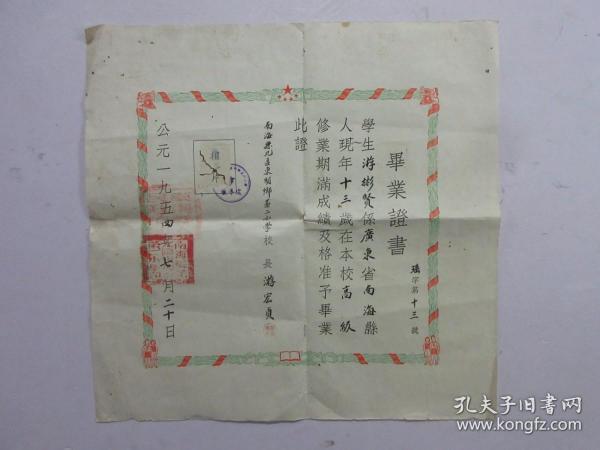 畢業證書
字第十三號
學生游彬賢係廣東省南海縣
人現年十三歲在本校高級
修業期滿成績及格准予畢業
此證
南海縣九區東頭鄉第二小學校 長 游宏貞
公元一九五四年七月二十日
孔夫子旧书网
www.kongfz.com